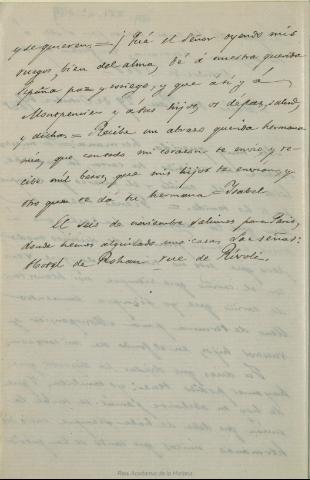 y se quieren. = ¡Qué el Señor oyendo mis
ruegos, bien del alma, dé á nuestra querida
España paz y sosiego, y que á ti y á
Montpensier y á tus hijos, os dé paz, salud
y dicha. = Recibe un abrazo querida hermana
mia, que con todo mi corazon te envio y re-
cibe mil besos, que mis hijos te envian, y
otro que te dá tu hermana = Isabel
El seis de noviembre salimos para Paris,
donde hemos alquilado una casa. Las señas:
Hotel de Rohan rue de Rivoli.
Real Academia de la Historia